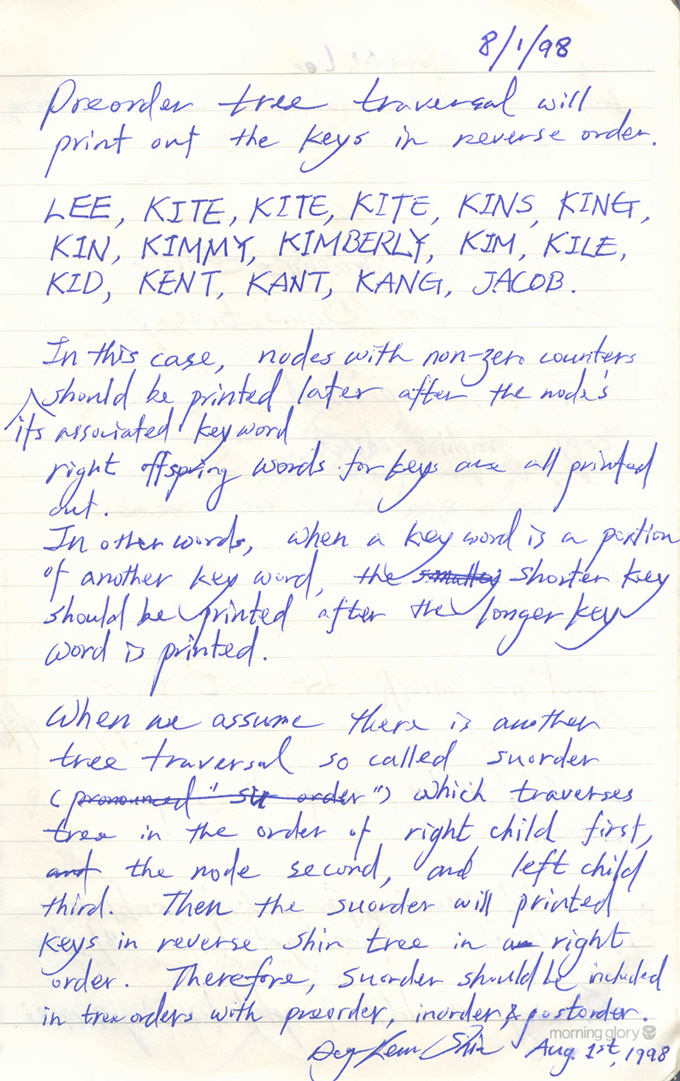 8/1/98
Preorder tree traversal will
print out the keys in reverse order.
LEE, KITE, KITE, KITE, KINS, KING,
KIN, KIMMY, KIMBERLY, KIM, KILE,
KID, KENT, KANT, KANG, JACOB.
In this case, nodes with non-zero counters
should be printed later after the node's
its associated key word
right offspring words for keys are all printed
out.
In other words, when a key word is a portion
of another key word, the smaller shorter key
should be printed after the longer key
word is printed.
When we assume there is another
tree traversal so called suorder
(pronounced "su order") which traverses
tree in the order of right child first,
and the node second, and left child
third. Then the suorder will printed
keys in reverse shin tree in a right
order. Therefore, suorder should be included
in tree orders with preorder, inorder & postorder.
morning glory
Shin Aug. 1st, 1998